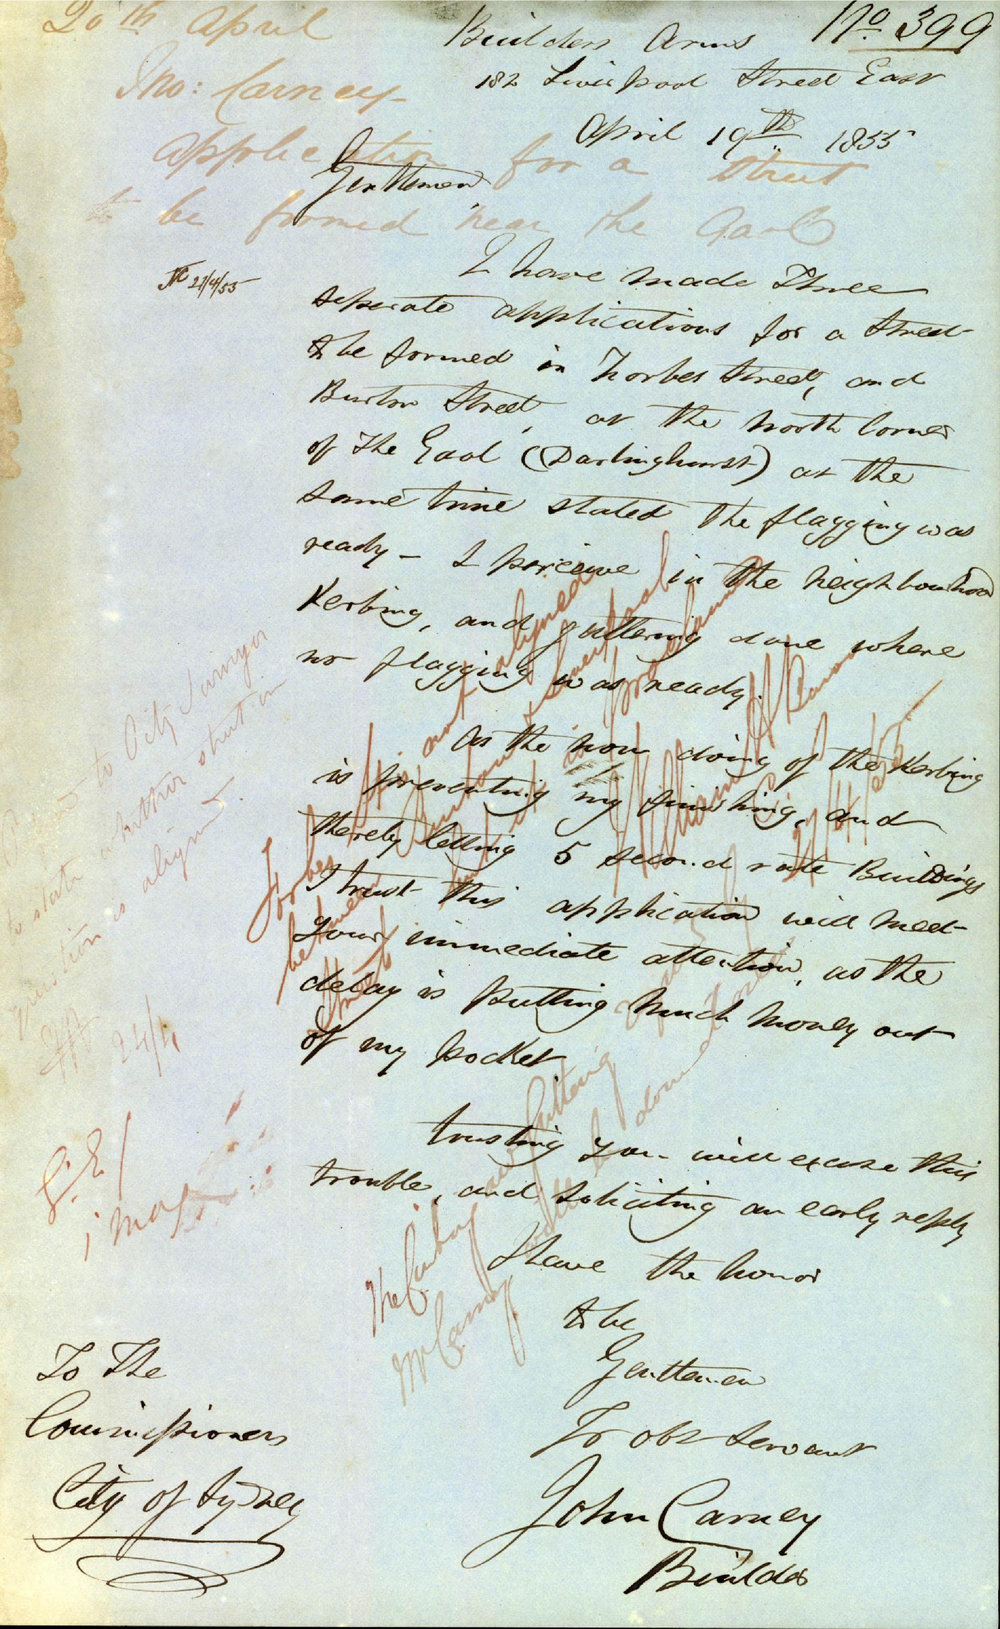 No. 399
Builders Arms
182 Liverpool Street East
April 19th 1855
20th April
Jno: Carney
application for a street
to be formed near the Gaol
Gentlemen
21/4/55
I have made Three
seperate applications for a Street
to be formed in Forbes Street, and
Burton Street, at the North Corner
of The Gaol (Darlinghurst) at the
same time stated the flagging was
ready - I perceive in the neighbourhood
Kerbing, and guttering done where
no flagging was ready.
As the non doing of the Kerbing
is preventing my finishing, and
thereby letting 5 second rate Buildings
I trust this application will meet
your immediate attention, as the
delay is putting much money out
of my pocket
trusting you will excuse this
trouble, and soliciting an early reply
I have the honor
to be
Gentlemen
Yr obt servant
John Carney
Builder
To The
Commissioners
City of Sydney
to City Surveyor
to state whether street in
question is aligned.
24/4
Forbes St is not aligned
between Burton & Liverpool
Street
27/4/55
The Curbing and guttering
Mr Carney will be done
C.E/
1 may